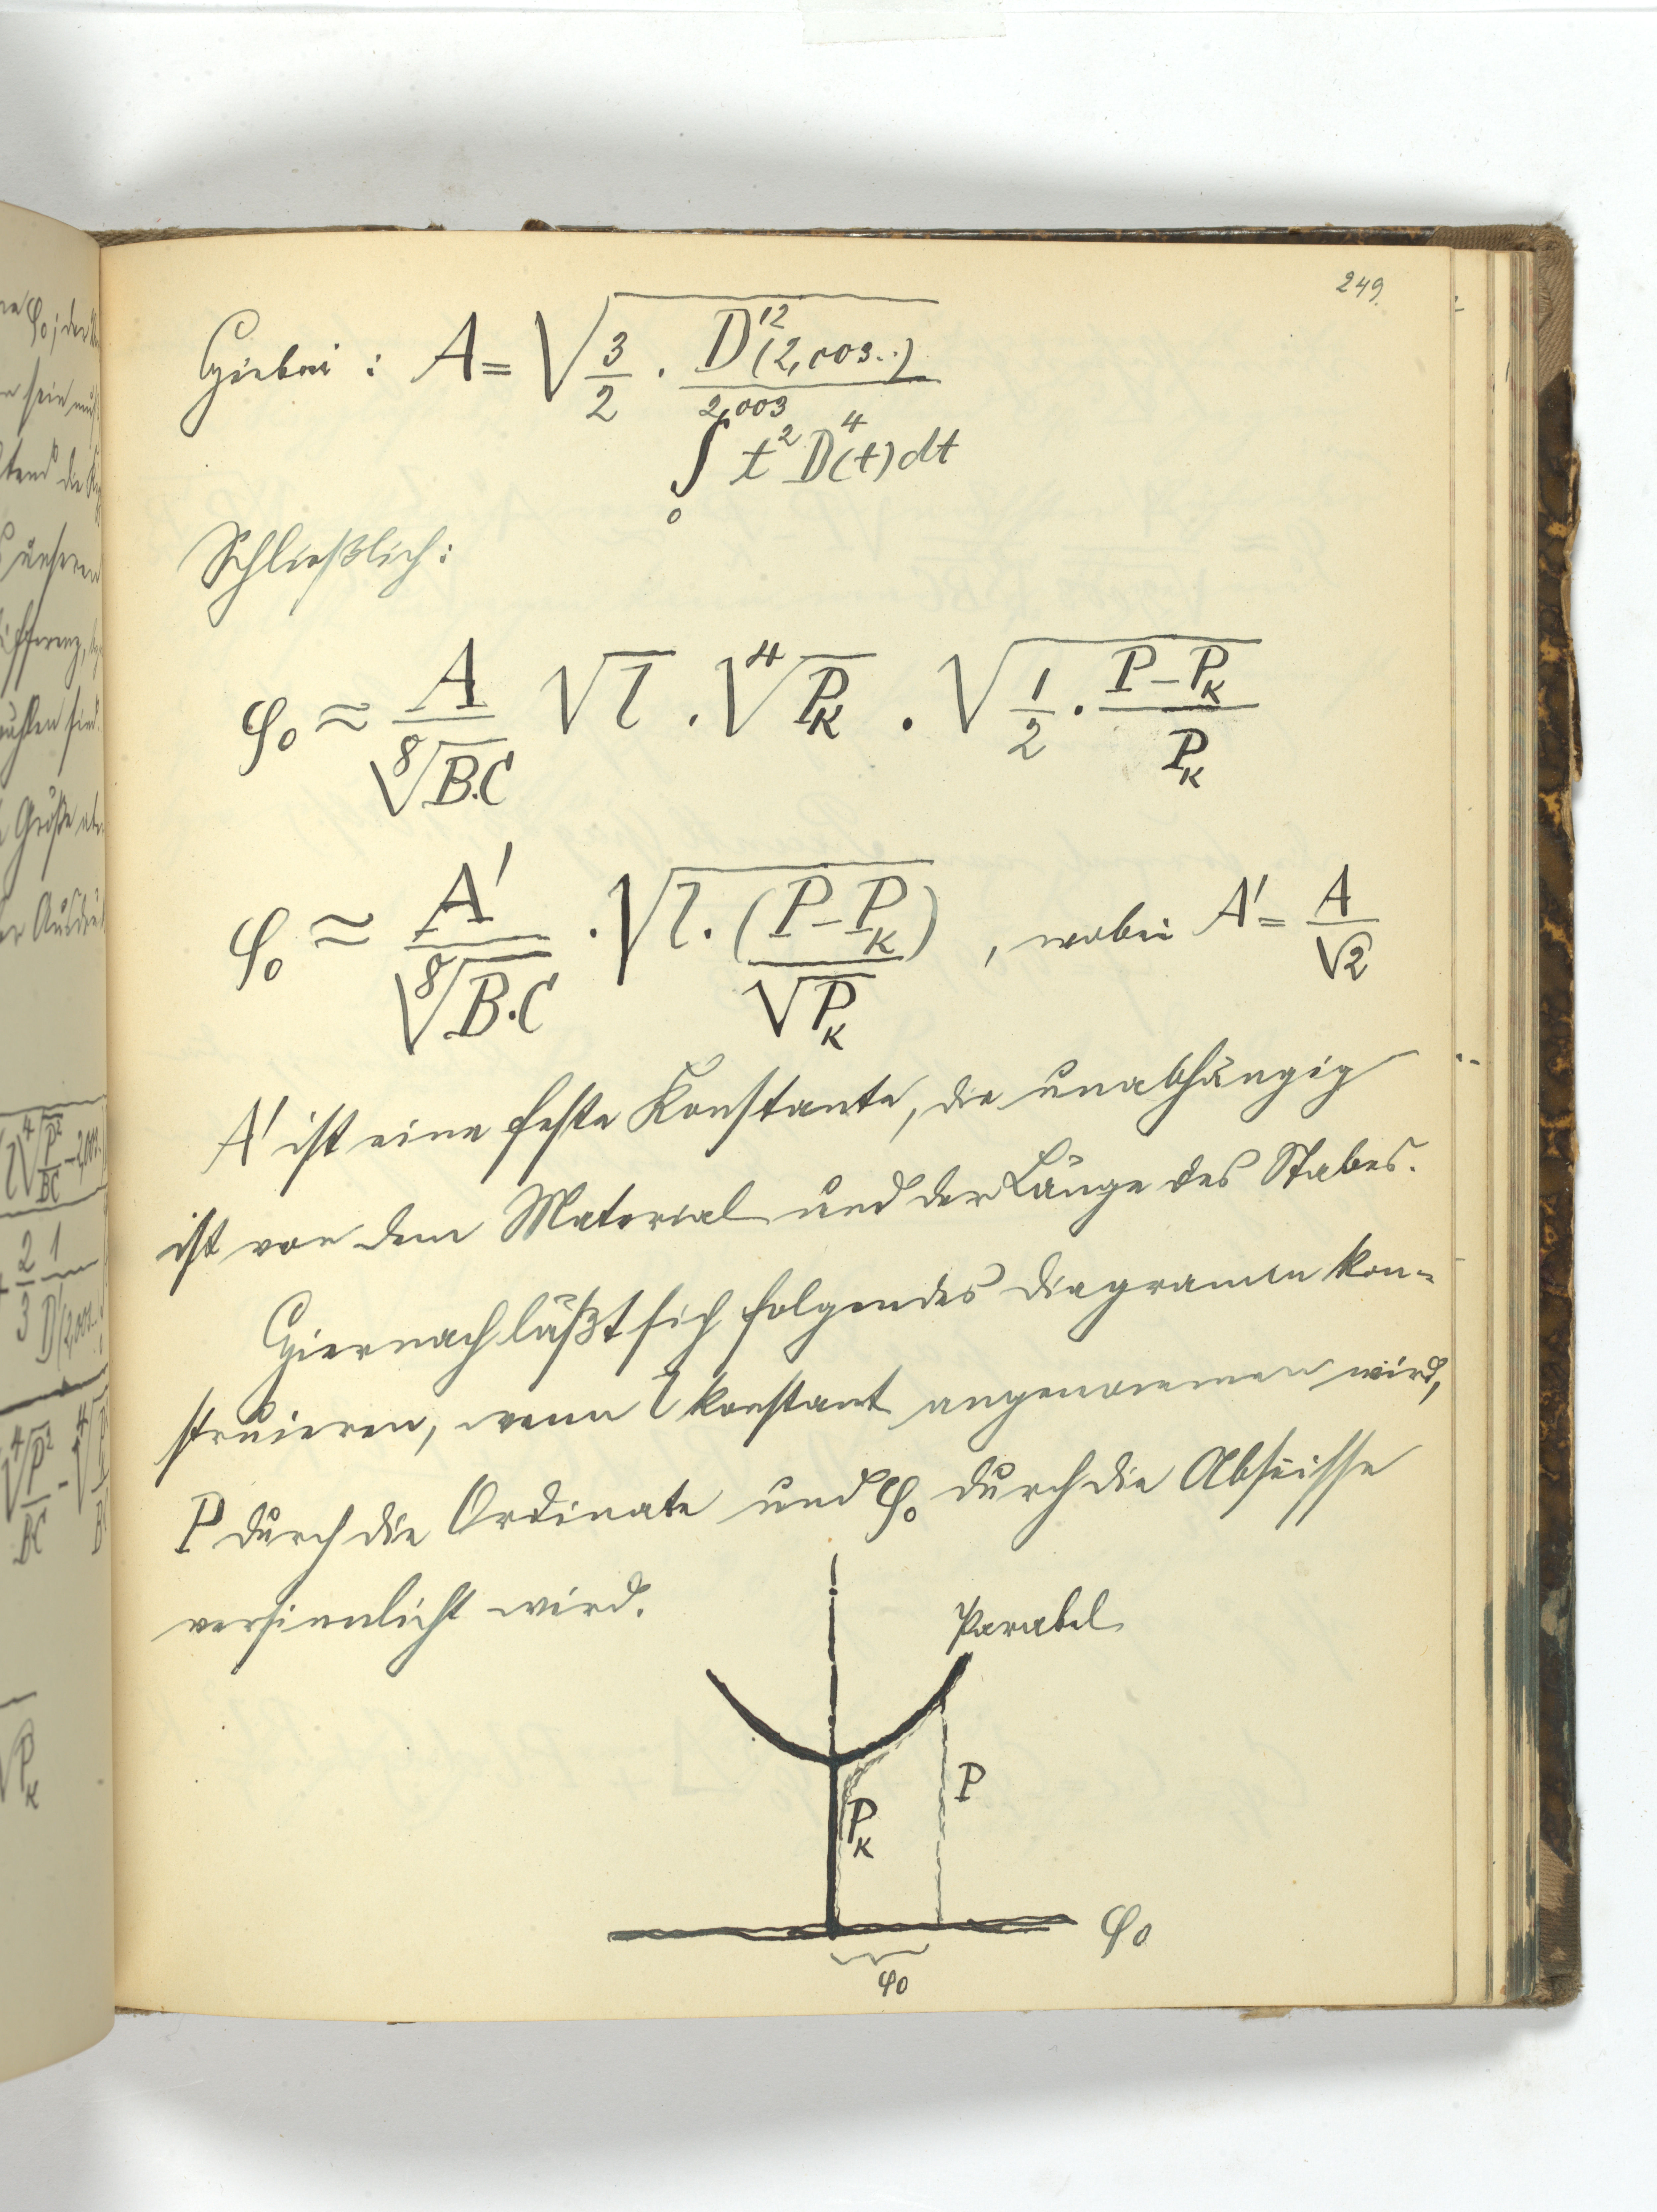 249.
Hiebei : A = √(3/2 · D'²(2,003..) / ∫₀^2,003 t² D⁴(t) dt)
Schließlich:
φ₀ ≈ A/⁸√(B.C) √l · ⁴√P_K · √(1/2 · (P–P_K)/P_K)
φ₀ ≈ A'/⁸√(B·C) · √(l · (P–P_K)/√P_K) , wobei A' = A/√2
A' ist eine feste Konstante, die unabhängig
ist von dem Material und der Länge des Stabes.
Hiernach läßt sich folgendes Diagramm kon=
struieren, wenn l konstant angenommen wird,
P durch die Ordinate und φ₀ durch die Abscisse
versinnlicht wird.
Parabel
P
P_K
φ₀
φ₀